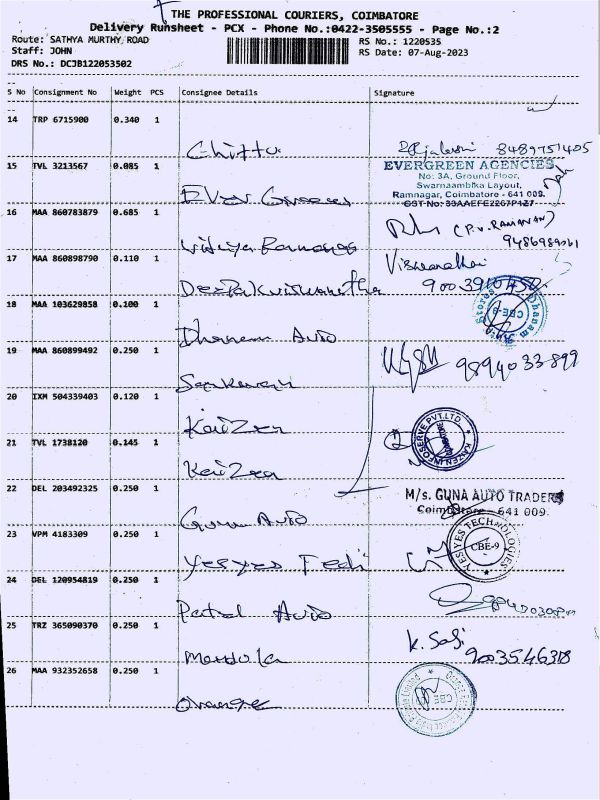 THE PROFESSIONAL COURIERS, COIMBATORE
Delivery Runsheet - PCX - Phone No.:0422-3505555 - Page No.:2
Route: SATHYA MURTHY ROAD
Staff: JOHN
DRS No.: DCJB122053502
RS No.: 1220535
RS Date: 07-Aug-2023
S No Consignment No Weight PCS Consignee Details Signature
14 TRP 6715900 0.340 1
Chittu 8489751405
15 TVL 3213567 0.085 1
EVERGREEN AGENCIES
No: 3A, Ground Floor,
Swarnaambika Layout,
Ramnagar, Coimbatore - 641 009.
Ever Greens
16 MAA 860783879 0.685 1
(P.V. RAMANAN)
Vidhya Ramanan
17 MAA 860898790 0.110 1
Deepak Viswanatha
18 MAA 103629858 0.100 1
Stores Dhanam
CBE-9
Dhanam Auto
19 MAA 860899492 0.250 1
9894033899
Sankaran
20 IXM 504339403 0.120 1
Kaizen
KAIZEN INFOSERVE PVT.LTD
21 TVL 1738120 0.145 1
Kaizen
22 DEL 203492325 0.250 1
M/s. GUNA AUTO TRADERS
Coimbatore - 641 009.
Guna Auto
23 VPM 4183309 0.250 1
YES YES TECHNOLOGIES
CBE-9
Yes yes Tech
24 DEL 120954819 0.250 1
Patel Auto
25 TRZ 365090370 0.250 1
K. Sasi
Mandula
26 MAA 932352658 0.250 1
CBE
Orange